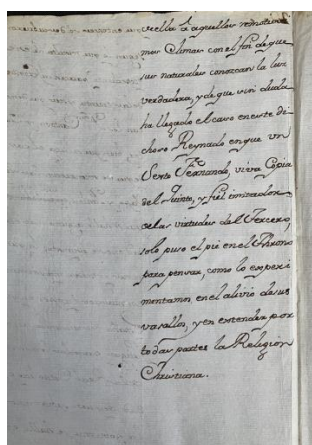 cella á aquellos remotissi
mos Climas con el fin de que
sus naturales conozcan la luz
verdadera, y de que sin duda
ha llegado el caso en este di
choso Reynado en que un
Sexto Fernando, viva Copia
del Quinto, y fiel imitador
de las virtudes del Tercero,
solo puso el pie en el Throno
para pensar, como lo experi
mentamos en el alivio de sus
vasallos, y en extender por
todas partes la Religion
Christiana.